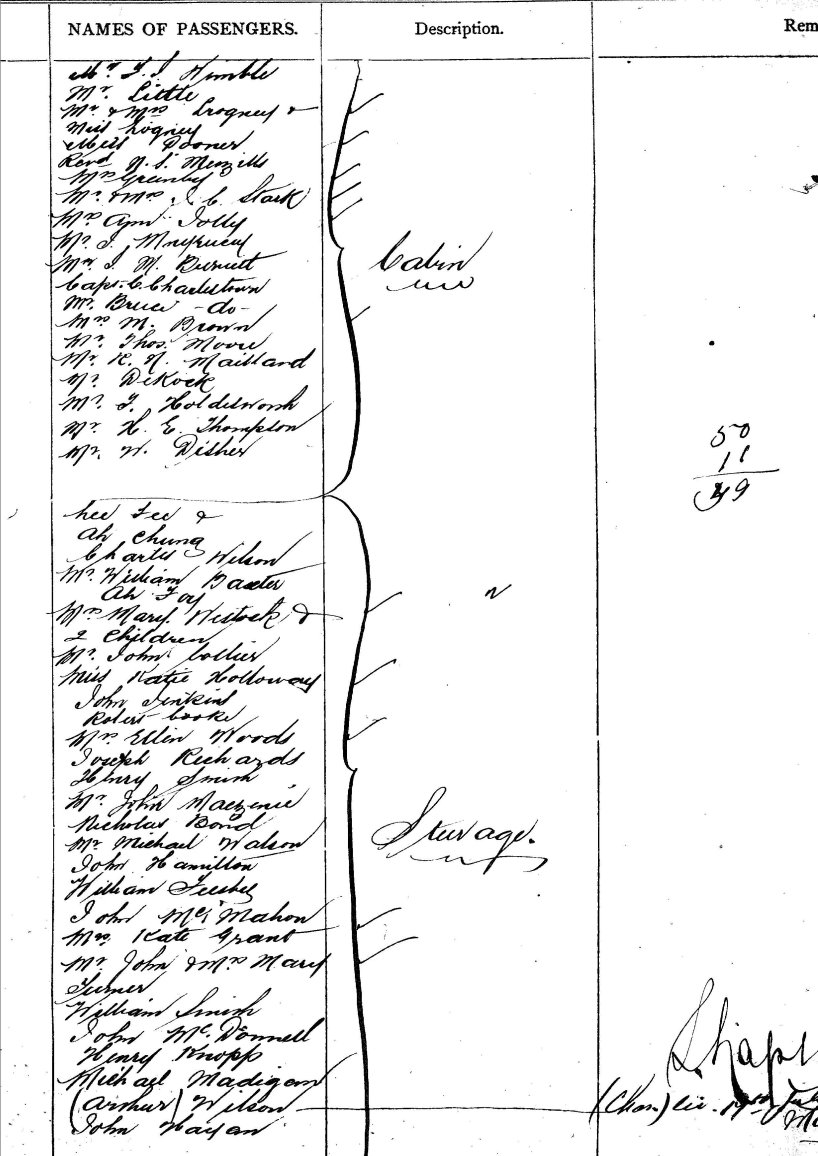 NAMES OF PASSENGERS. Description. Rem
Mr. T. J. Wimble
Mr. Little
Mr. & Mrs &
Miss
Miss Dooner
Revd N. S. Menzills
Mrs Granby
Mr. & Mrs J. C. Stark
Mrs Ann Jolly
Mr. J.
Mr. J. M. Burnett
Capt. C. Charlestown
Mr. Bruce - do -
Mrs M. Brown
Mr. Thos. Moore
Mr. R. N. Maitland
Mr. DeKock
Mr. T. Holdsworth
Mr. H. E. Thompson
Mr. W. Disher
Cabin
50
11
39
Lee Fee &
Ah Chung
Charles Wilson
Mr. William Baxter
Ah Foy
Mrs Mary Westock &
2 Children
Mr. John Collier
Miss Katie Holloway
John Jenkins
Robert Cooke
Mrs Ellen Woods
Joseph Richards
Henry Smith
Mr. John Mackenzie
Nicholas Bond
Mr Michael Watson
John Hamilton
William
John McMahon
Mrs. Kate Grant
Mr. John & Mrs Mary
Turner
William Smith
John McDonnell
Henry Knopp
Michael Madigan
(Arthur) Wilson
John Hayan
Steerage.